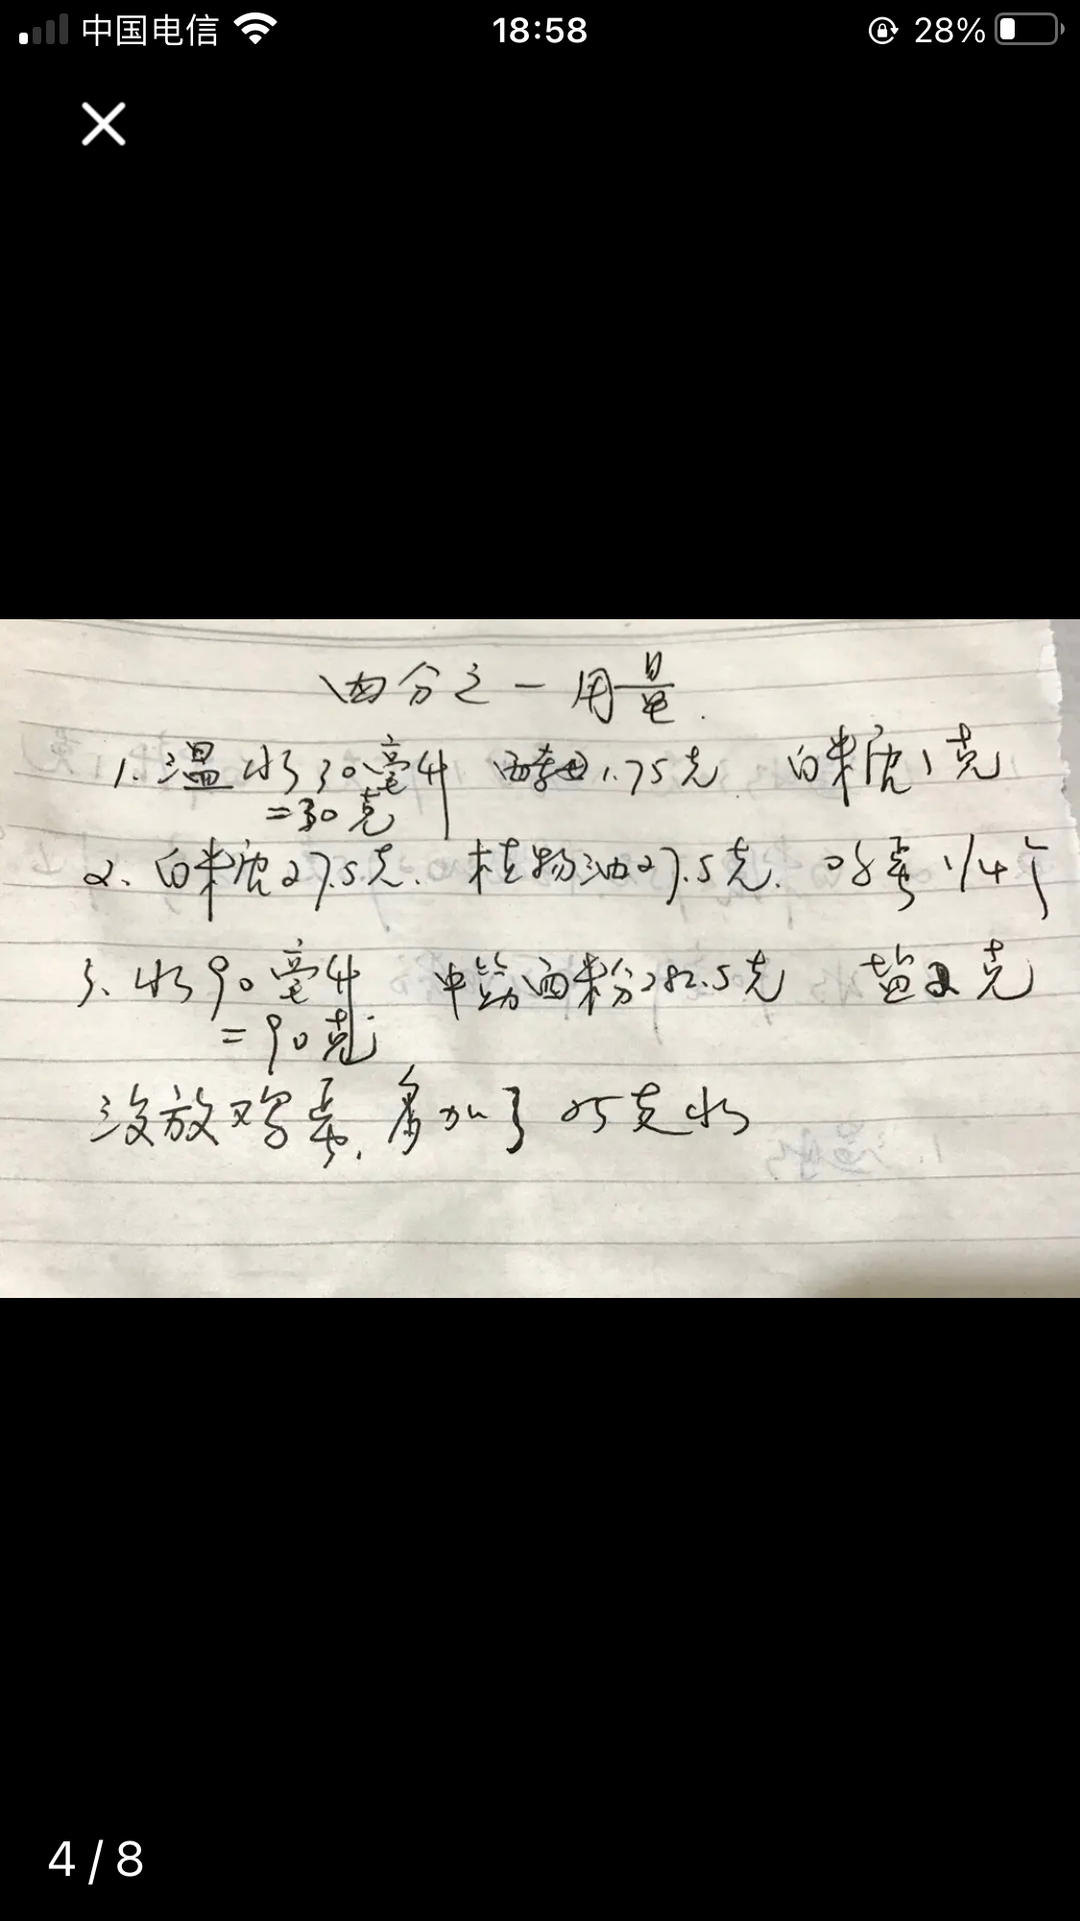 中国电信 18:58 28%
四分之一用量.
1.温水30毫升 酵母1.75克 白米唐1克
=30克
2、白米唐27.5克. 植物油27.5克. 鸡蛋1/4个
3、水90毫升 中筋面粉282.5克 盐2克
=90克
没放鸡蛋,多加了25克水
4/8